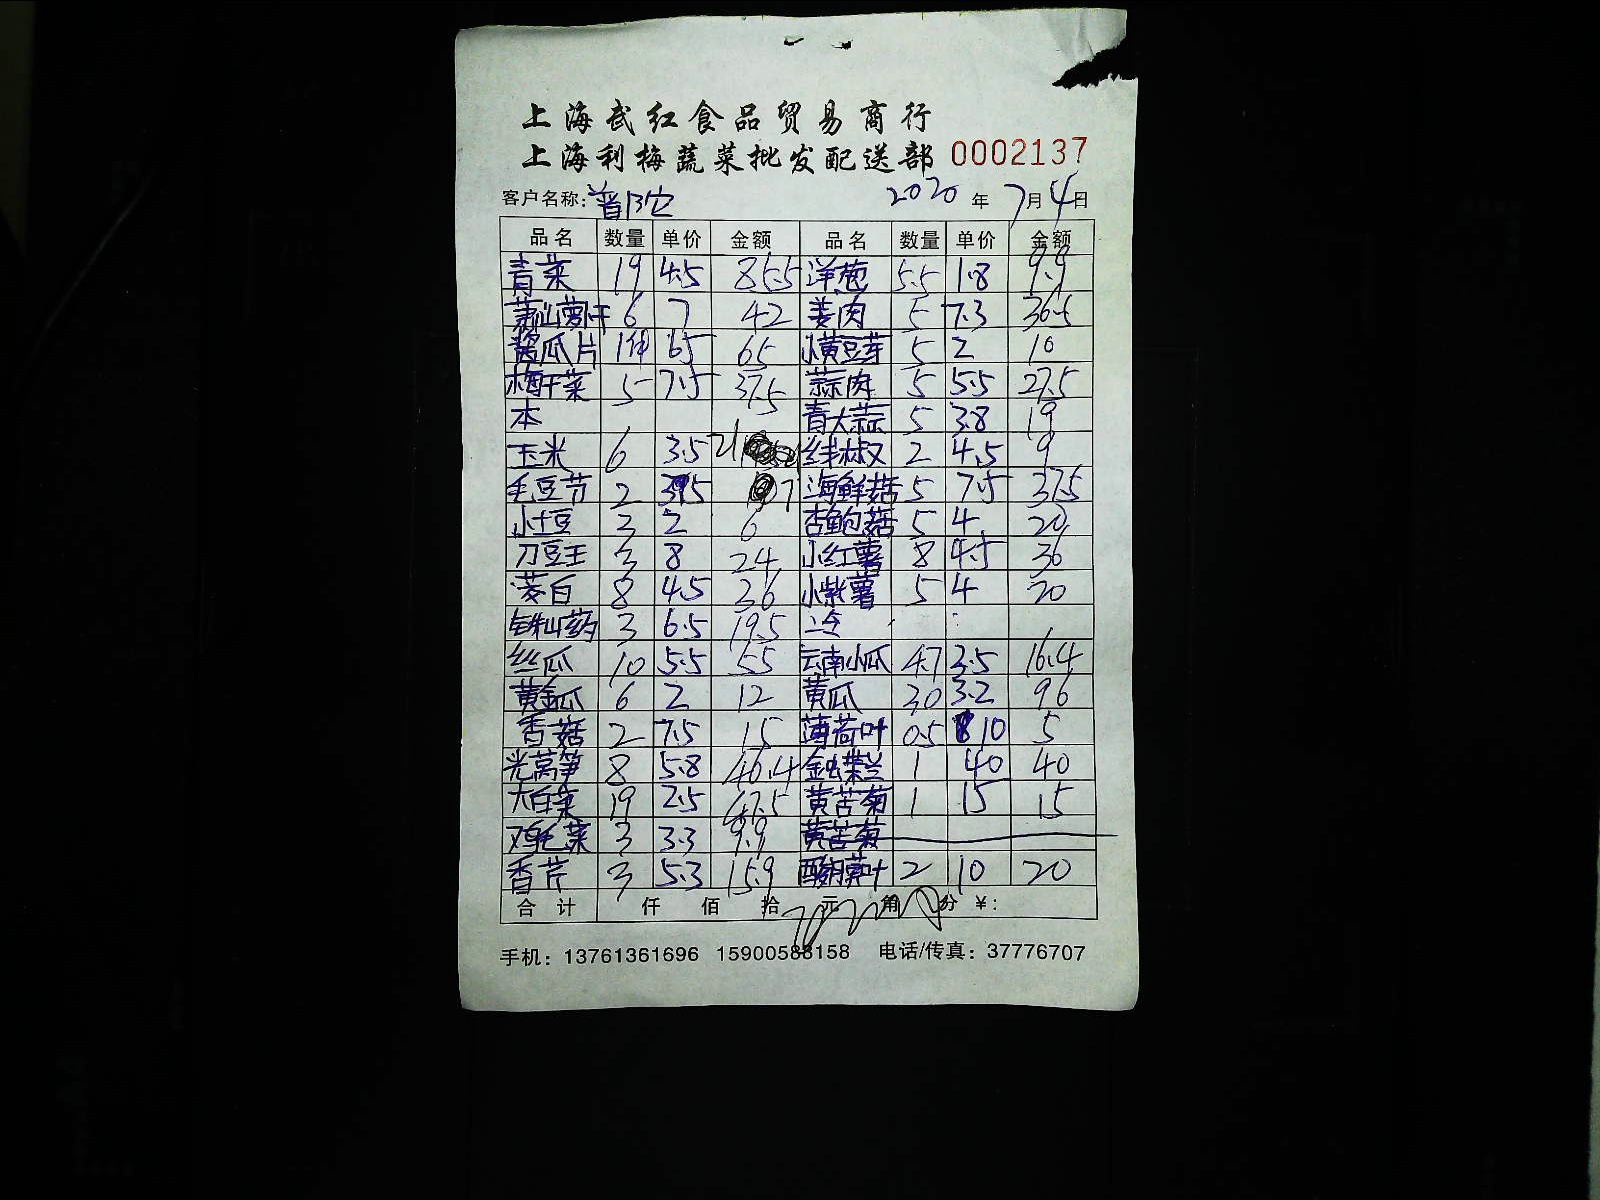 上海武红食品贸易商行
上海利梅蔬菜批发配送部 0002137
客户名称: 2020 年 7 月 4 日
品名 数量 单价 金额 品名 数量 单价 金额
青菜 19 4.5 85.5 洋葱 5.5 1.8 9.9
萧山萝卜干 6 7 42 姜肉 5 7.3 36.5
酱瓜片 1件 65 65 小黄豆芽 5 2 10
梅干菜 5 7.5 37.5 蒜肉 5 5.5 27.5
本 青大蒜 5 3.8 19
玉米 6 3.5 21 羊椒 2 4.5 9
毛豆节 2 3.5 7 海鲜菇 5 7.5 37.5
小土豆 3 2 6 杏鲍菇 5 4 20
刀豆王 3 8 24 小红薯 8 4.5 36
茭白 8 4.5 36 小紫薯 5 4 20
铁山药 3 6.5 19.5
丝瓜 10 5.5 55 云南小瓜 4.7 3.5 16.4
黄金瓜 6 2 12 黄瓜 30 3.2 96
香菇 2 7.5 15 薄荷叶 0.5 10 5
光莴笋 8 5.8 46.4 1 40 40
大白菜 19 2.5 47.5 黄苦菊 1 15 15
鸡毛菜 3 3.3 9.9 黄苦菊
香芹 3 5.3 15.9 2 10 20
合计 仟 佰 拾 元 角 分 ¥:
手机: 13761361696 15900588158 电话/传真: 37776707